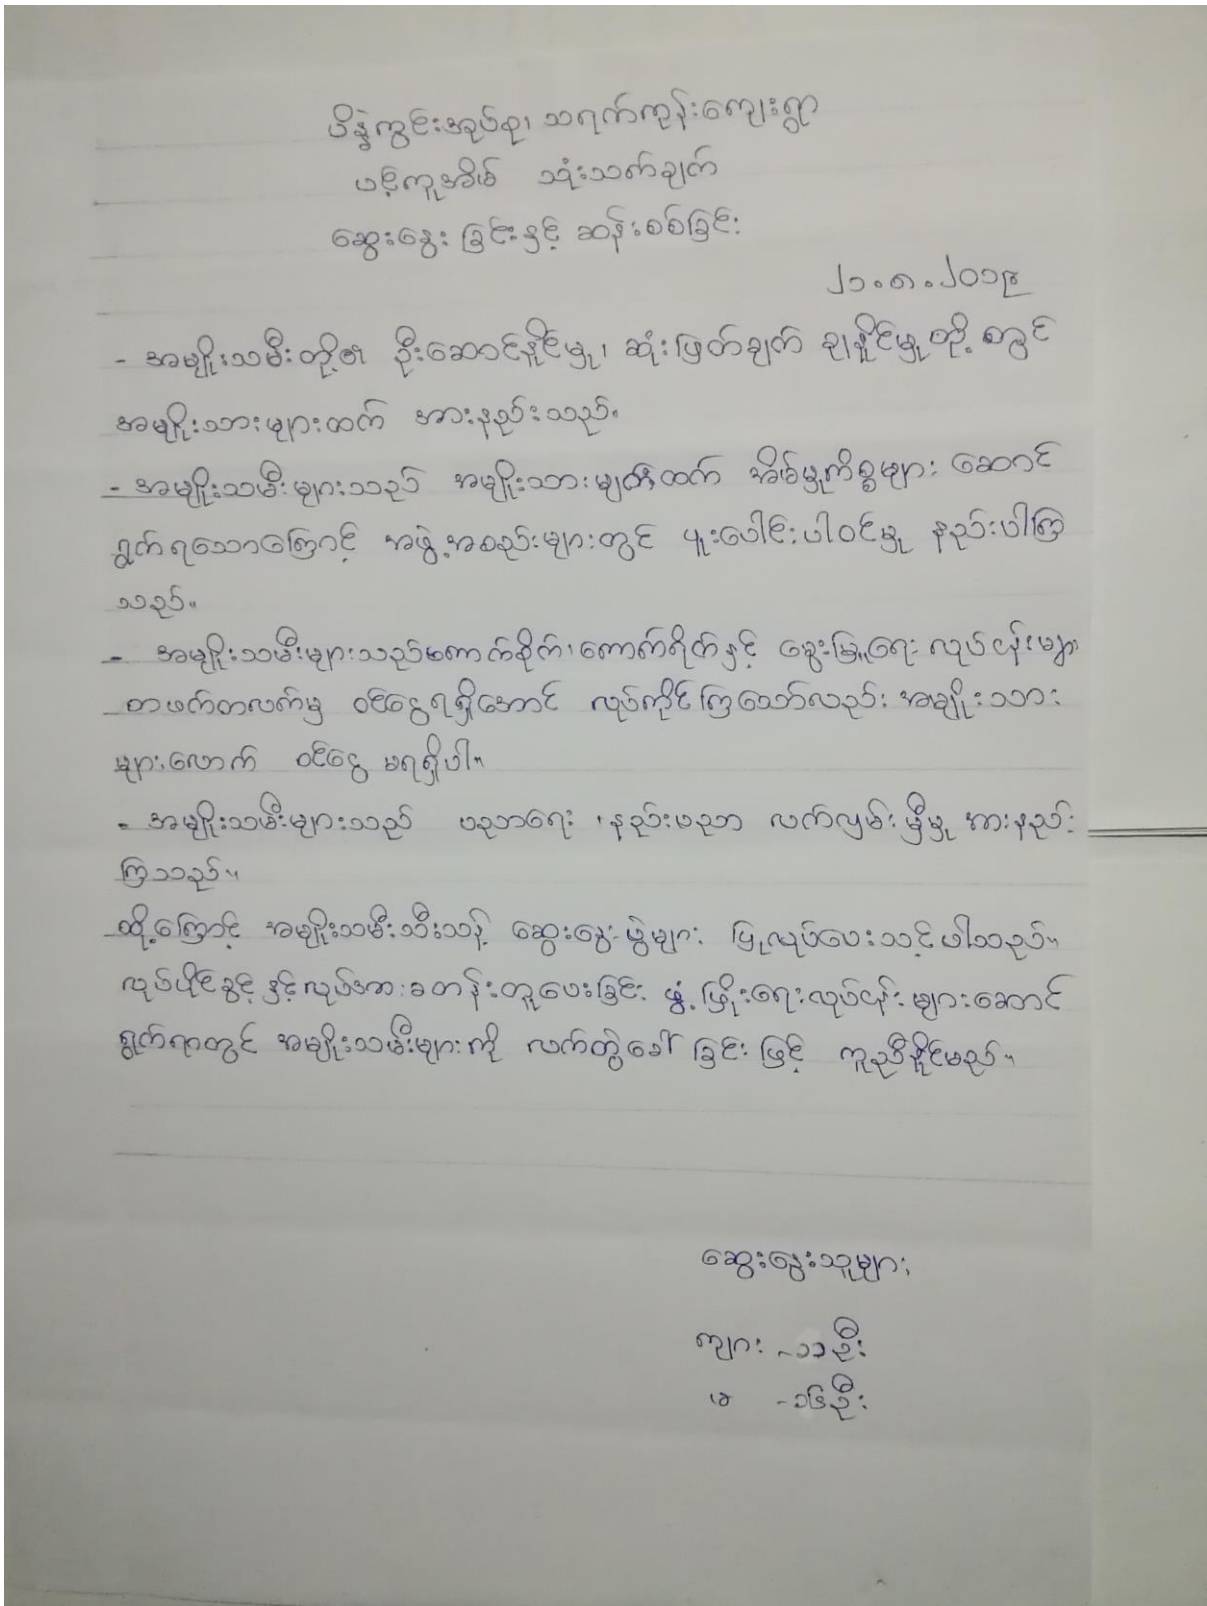 ပိန္နဲကွင်းအုပ်စု၊ သရက်ကုန်းကျေးရွာ
ပင့်ကူအိမ် သုံးသက်ချက်
ဆွေးနွေးခြင်းနှင့် ဆန်းစစ်ခြင်း
၂၁.၈.၂၀၁၉
- အမျိုးသမီးတို့၏ ဦးဆောင်နိုင်မှု၊ ဆုံးဖြတ်ချက် ချနိုင်မှုတို့ တွင်
အမျိုးသားများထက် အားနည်းသည်။
- အမျိုးသမီးများသည် အမျိုးသားများထက် အိမ်မှုကိစ္စများ ဆောင်
ရွက်ရသောကြောင့် အဖွဲ့အစည်းများတွင် ပူးပေါင်းပါဝင်မှု နည်းပါကြ
သည်။
- အမျိုးသမီးများသည်ကောက်စိုက်၊ကောက်ရိတ်နှင့် မွေးမြူရေး လုပ်ငန်းများ
တဖက်တလက်မှ ဝင်ငွေရရှိအောင် လုပ်ကိုင်ကြသော်လည်း အမျိုးသား
များလောက် ဝင်ငွေ မရရှိပါ။
- အမျိုးသမီးများသည် ပညာရေး ၊နည်းပညာ လက်လှမ်းမှီမှု အားနည်း
ကြသည်။
ထို့ကြောင့် အမျိုးသမီးသီးသန့် ဆွေးနွေးပွဲများ ပြုလုပ်ပေးသင့်ပါသည်။
လုပ်ပိုင်ခွင့်နှင့်လုပ်အားခတန်းတူပေးခြင်း ဖွံ့ဖြိုးရေးလုပ်ငန်းများဆောင်
ရွက်ရာတွင် အမျိုးသမီးများကို လက်တွဲခေါ်ခြင်းဖြင့် ကူညီနိုင်မည်။
ဆွေးနွေးသူများ
ကျား -၁၁ဦး
မ -၁၆ဦး